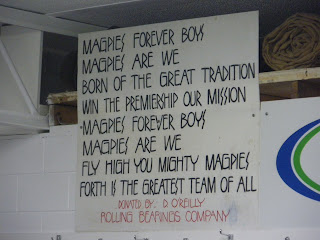 MAGPIES FOREVER BOYS
MAGPIES ARE WE
BORN OF THE GREAT TRADITION
WIN THE PREMIERSHIP OUR MISSION
MAGPIES FOREVER BOYS
MAGPIES ARE WE
FLY HIGH YOU MIGHTY MAGPIES
FORTH IS THE GREATEST TEAM OF ALL
DONATED BY: D O'REILLY
ROLLING BEARINGS COMPANY